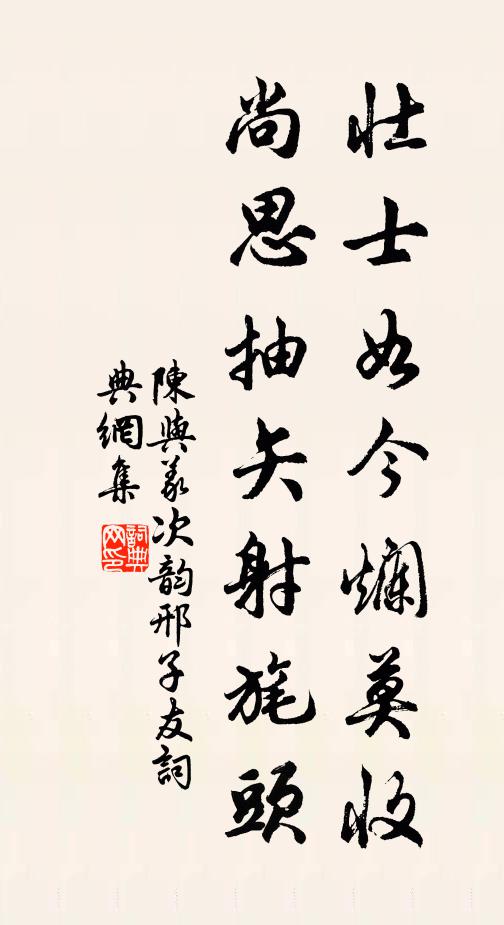 壯士如今爛莫收
尚思抽矢射旄頭
陳與義次韵邢子友詞
典網集
詞典網印